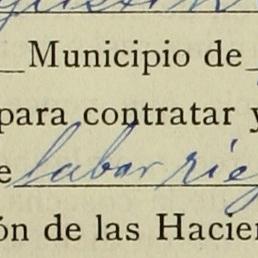 Municipio de
para contratar y
e labor rieg
ón de las Hacien